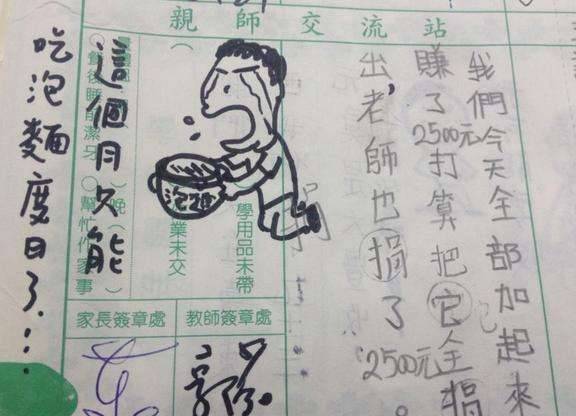 親師交流站
我們今天全部加起來
賺了2500元打算把它全捐
出,老師也捐了2500元。
泡麵
學用品未帶
業未交
這個月只能
吃泡麵度日了....
幫忙作家事
教師簽章處
家長簽章處